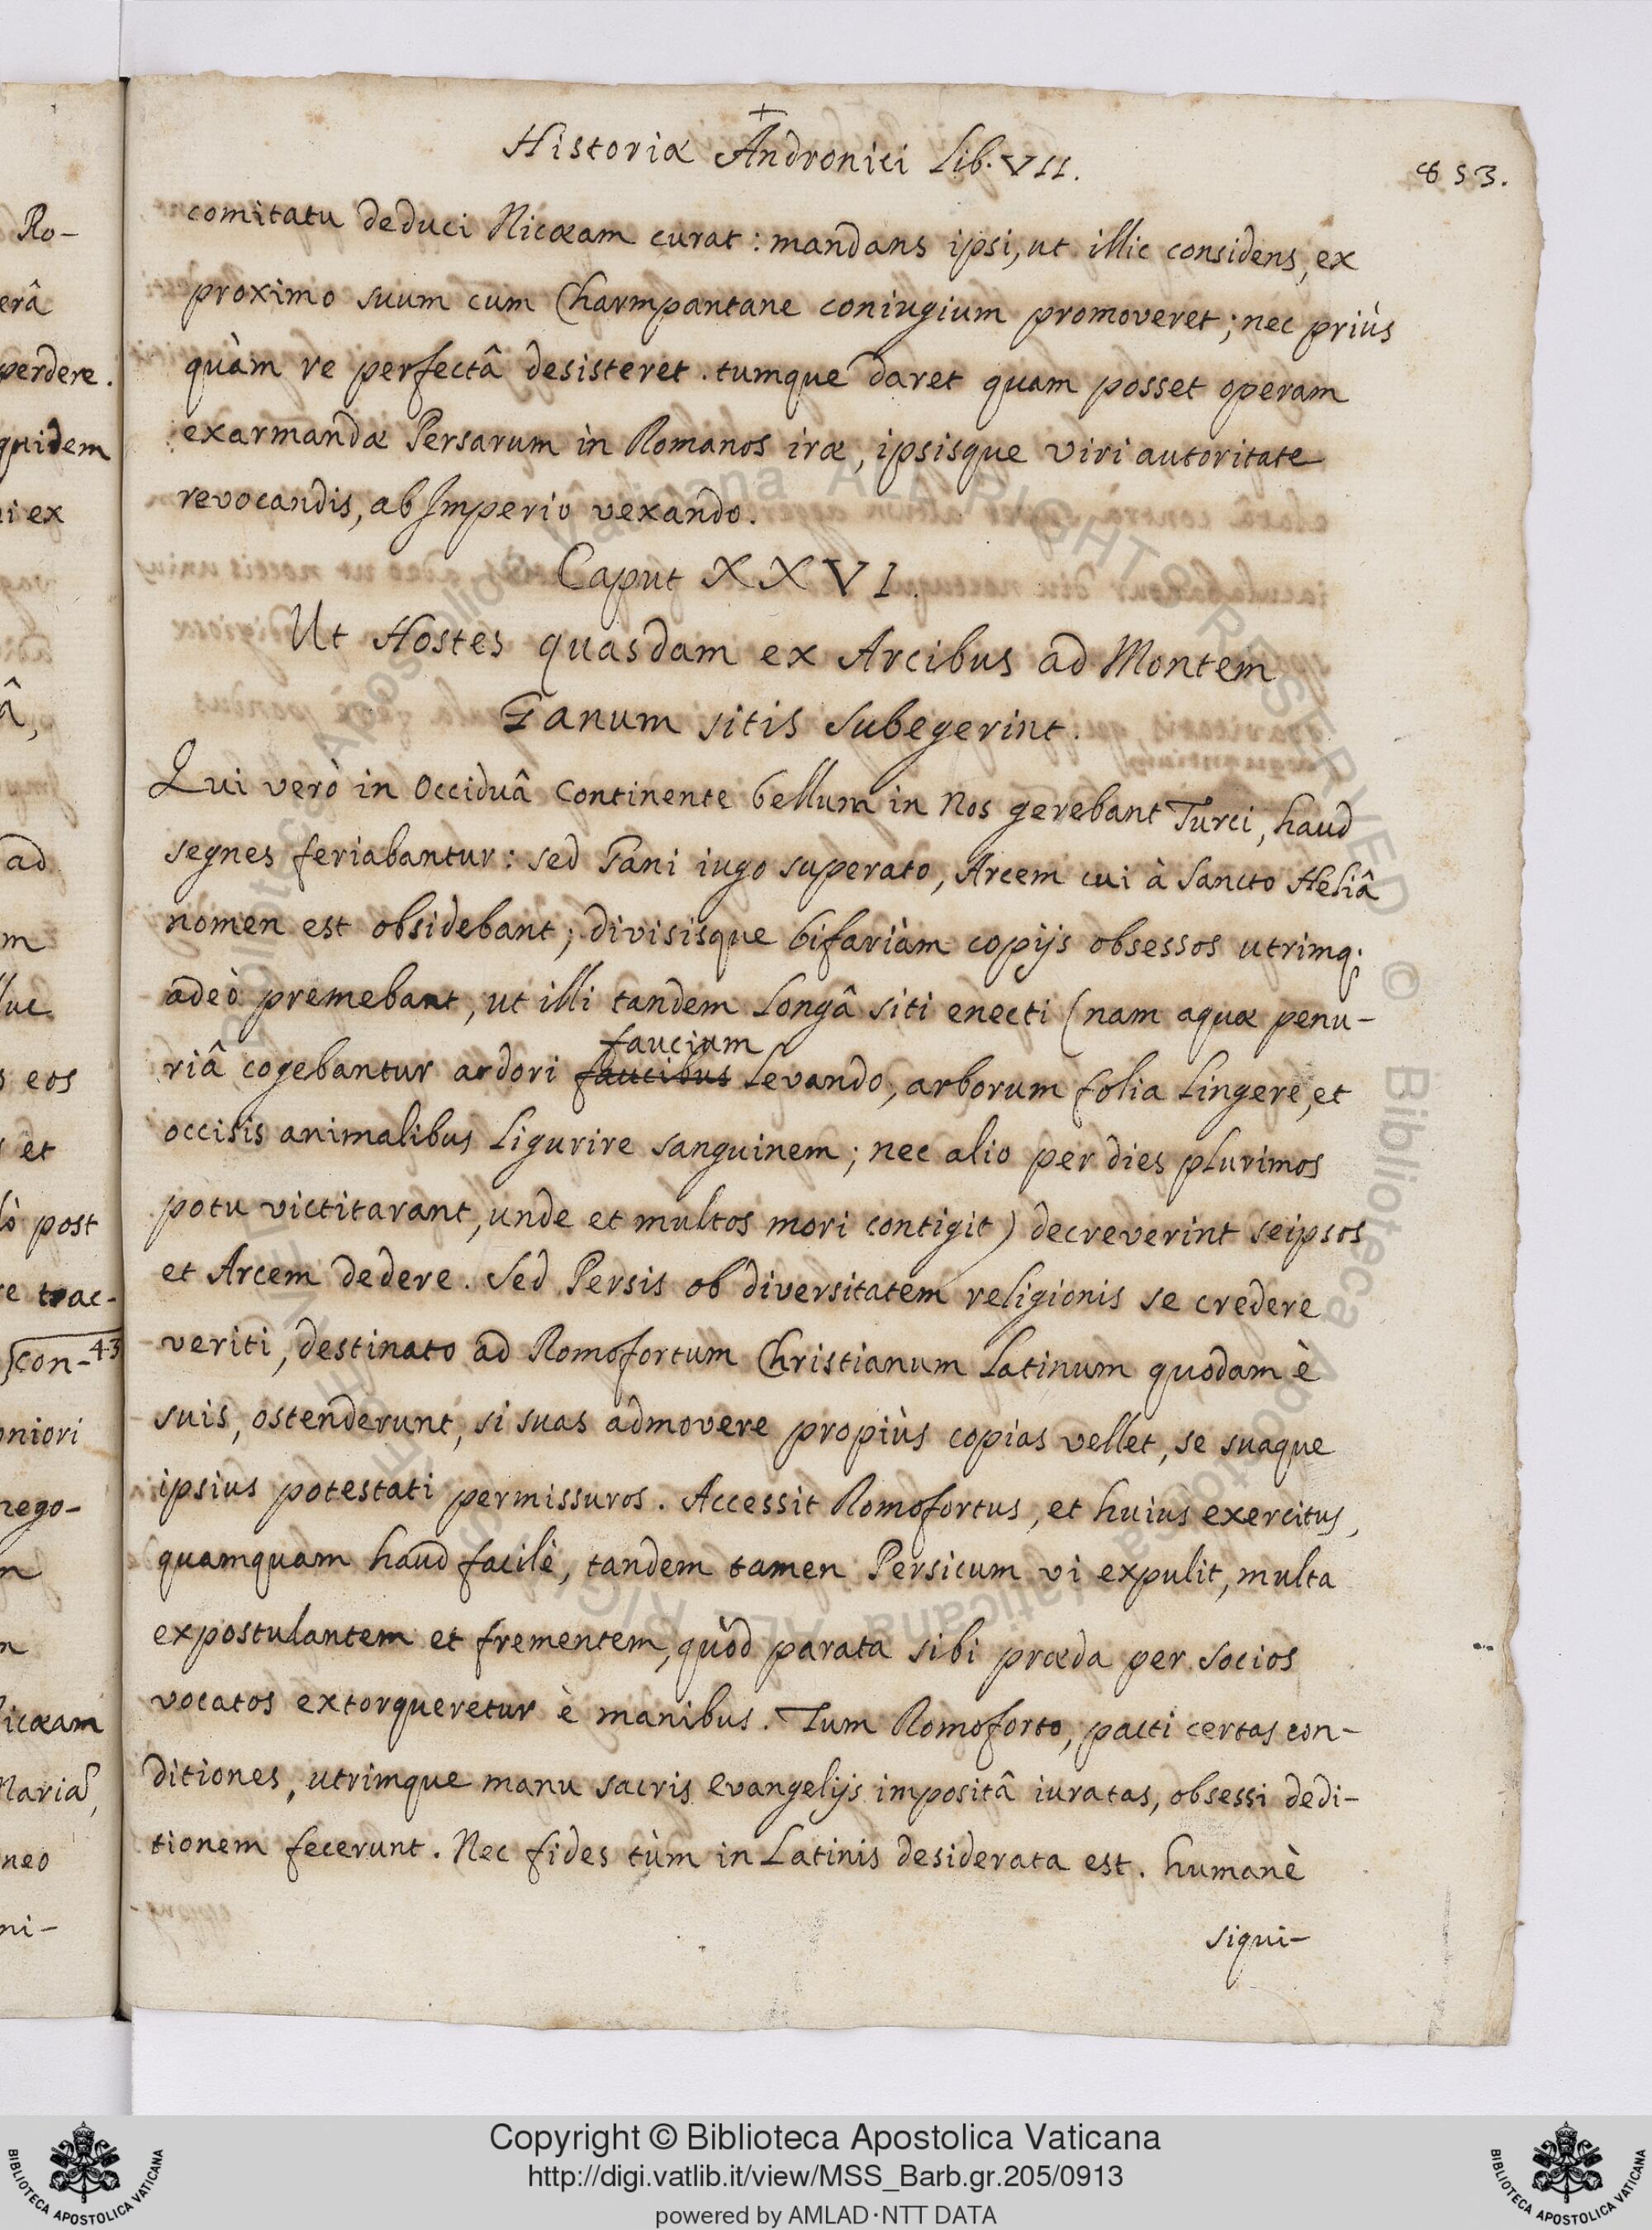 Historiæ Andronici Lib. VII.
853.
comitatu deduci Nicæam curat: mandans ipsi, ut illic considens, ex
proximo suum cum Charmpantane coniugium promoveret; nec priùs
quàm re perfectâ desisteret. tumque daret quam posset operam
exarmandæ Persarum in Romanos iræ, ipsisque viri autoritate
revocandis, ab Imperio vexando.
Caput XXVI.
Ut Hostes quasdam ex Arcibus ad Montem
Ganum sitis subegerint.
Qui verò in Occiduâ Continente bellum in Nos gerebant Turci, haud
segnes feriabantur: sed Gani iugo superato, Arcem cui à Sancto Heliâ
nomen est obsidebant; divisisque bifariàm copijs obsessos utrimq;
adeò premebant, ut illi tandem longâ siti enecti (nam aquæ penu-
faucium
riâ cogebantur ardori faucibus levando, arborum folia lingere, et
occisis animalibus ligurire sanguinem; nec alio per dies plurimos
potu victitarant, unde et multos mori contigit) decreverint seipsos
et Arcem dedere. Sed Persis ob diversitatem religionis se credere
veriti, destinato ad Romofortum Christianum Latinum quodam è
suis, ostenderunt, si suas admovere propiùs copias vellet, se suaque
ipsius potestati permissuros. Accessit Romofortus, et huius exercitus,
quamquam haud facilè, tandem tamen Persicum vi expulit, multa
expostulantem et frementem, quòd parata sibi præda per socios
vocatos extorqueretur è manibus. Tum Romoforto, pacti certas con-
ditiones, utrimque manu sacris Evangelijs impositâ iuratas, obsessi dedi-
tionem fecerunt. Nec fides tùm in Latinis desiderata est. humanè
siqui-
Ro-
erâ
perdere.
quidem
i ex
â,
ad
m
luc
s eos
s et
lò post
re trac-
con-43
oniori
nego-
n
n
Nicæam
Maria,
neo
ni-
Copyright © Biblioteca Apostolica Vaticana
http://digi.vatlib.it/view/MSS_Barb.gr.205/0913
powered by AMLAD·NTT DATA
BIBLIOTECA APOSTOLICA VATICANA
BIBLIOTECA APOSTOLICA VATICANA